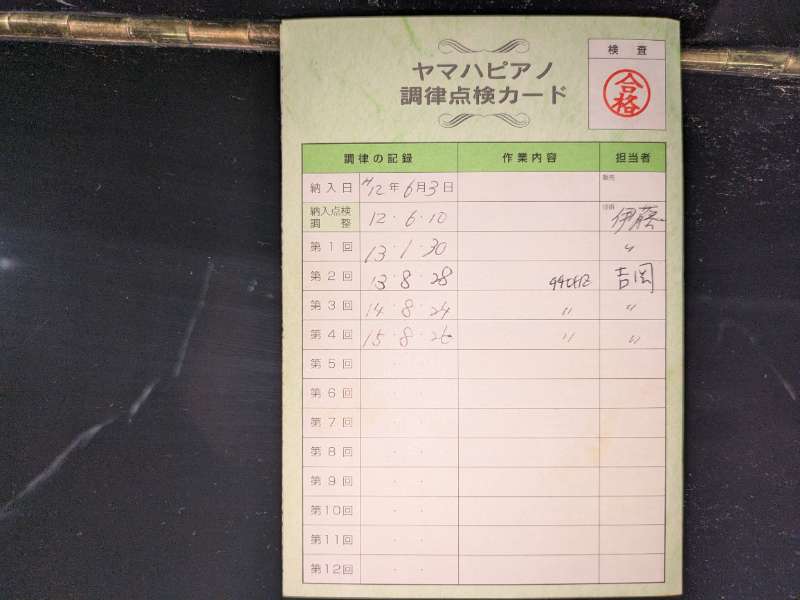 ヤマハピアノ
調律点検カード
検 査
合格
調律の記録 作業内容 担当者
納入日 H12年6月3日 販売
納入点検調整 12・6・10 技術 伊藤
第1回 13・1・30 〃
第2回 13・8・28 442HZ 吉岡
第3回 14・8・24 〃 〃
第4回 15・8・26 〃 〃
第5回 ・ ・
第6回 ・ ・
第7回 ・ ・
第8回 ・ ・
第9回 ・ ・
第10回 ・ ・
第11回 ・ ・
第12回 ・ ・